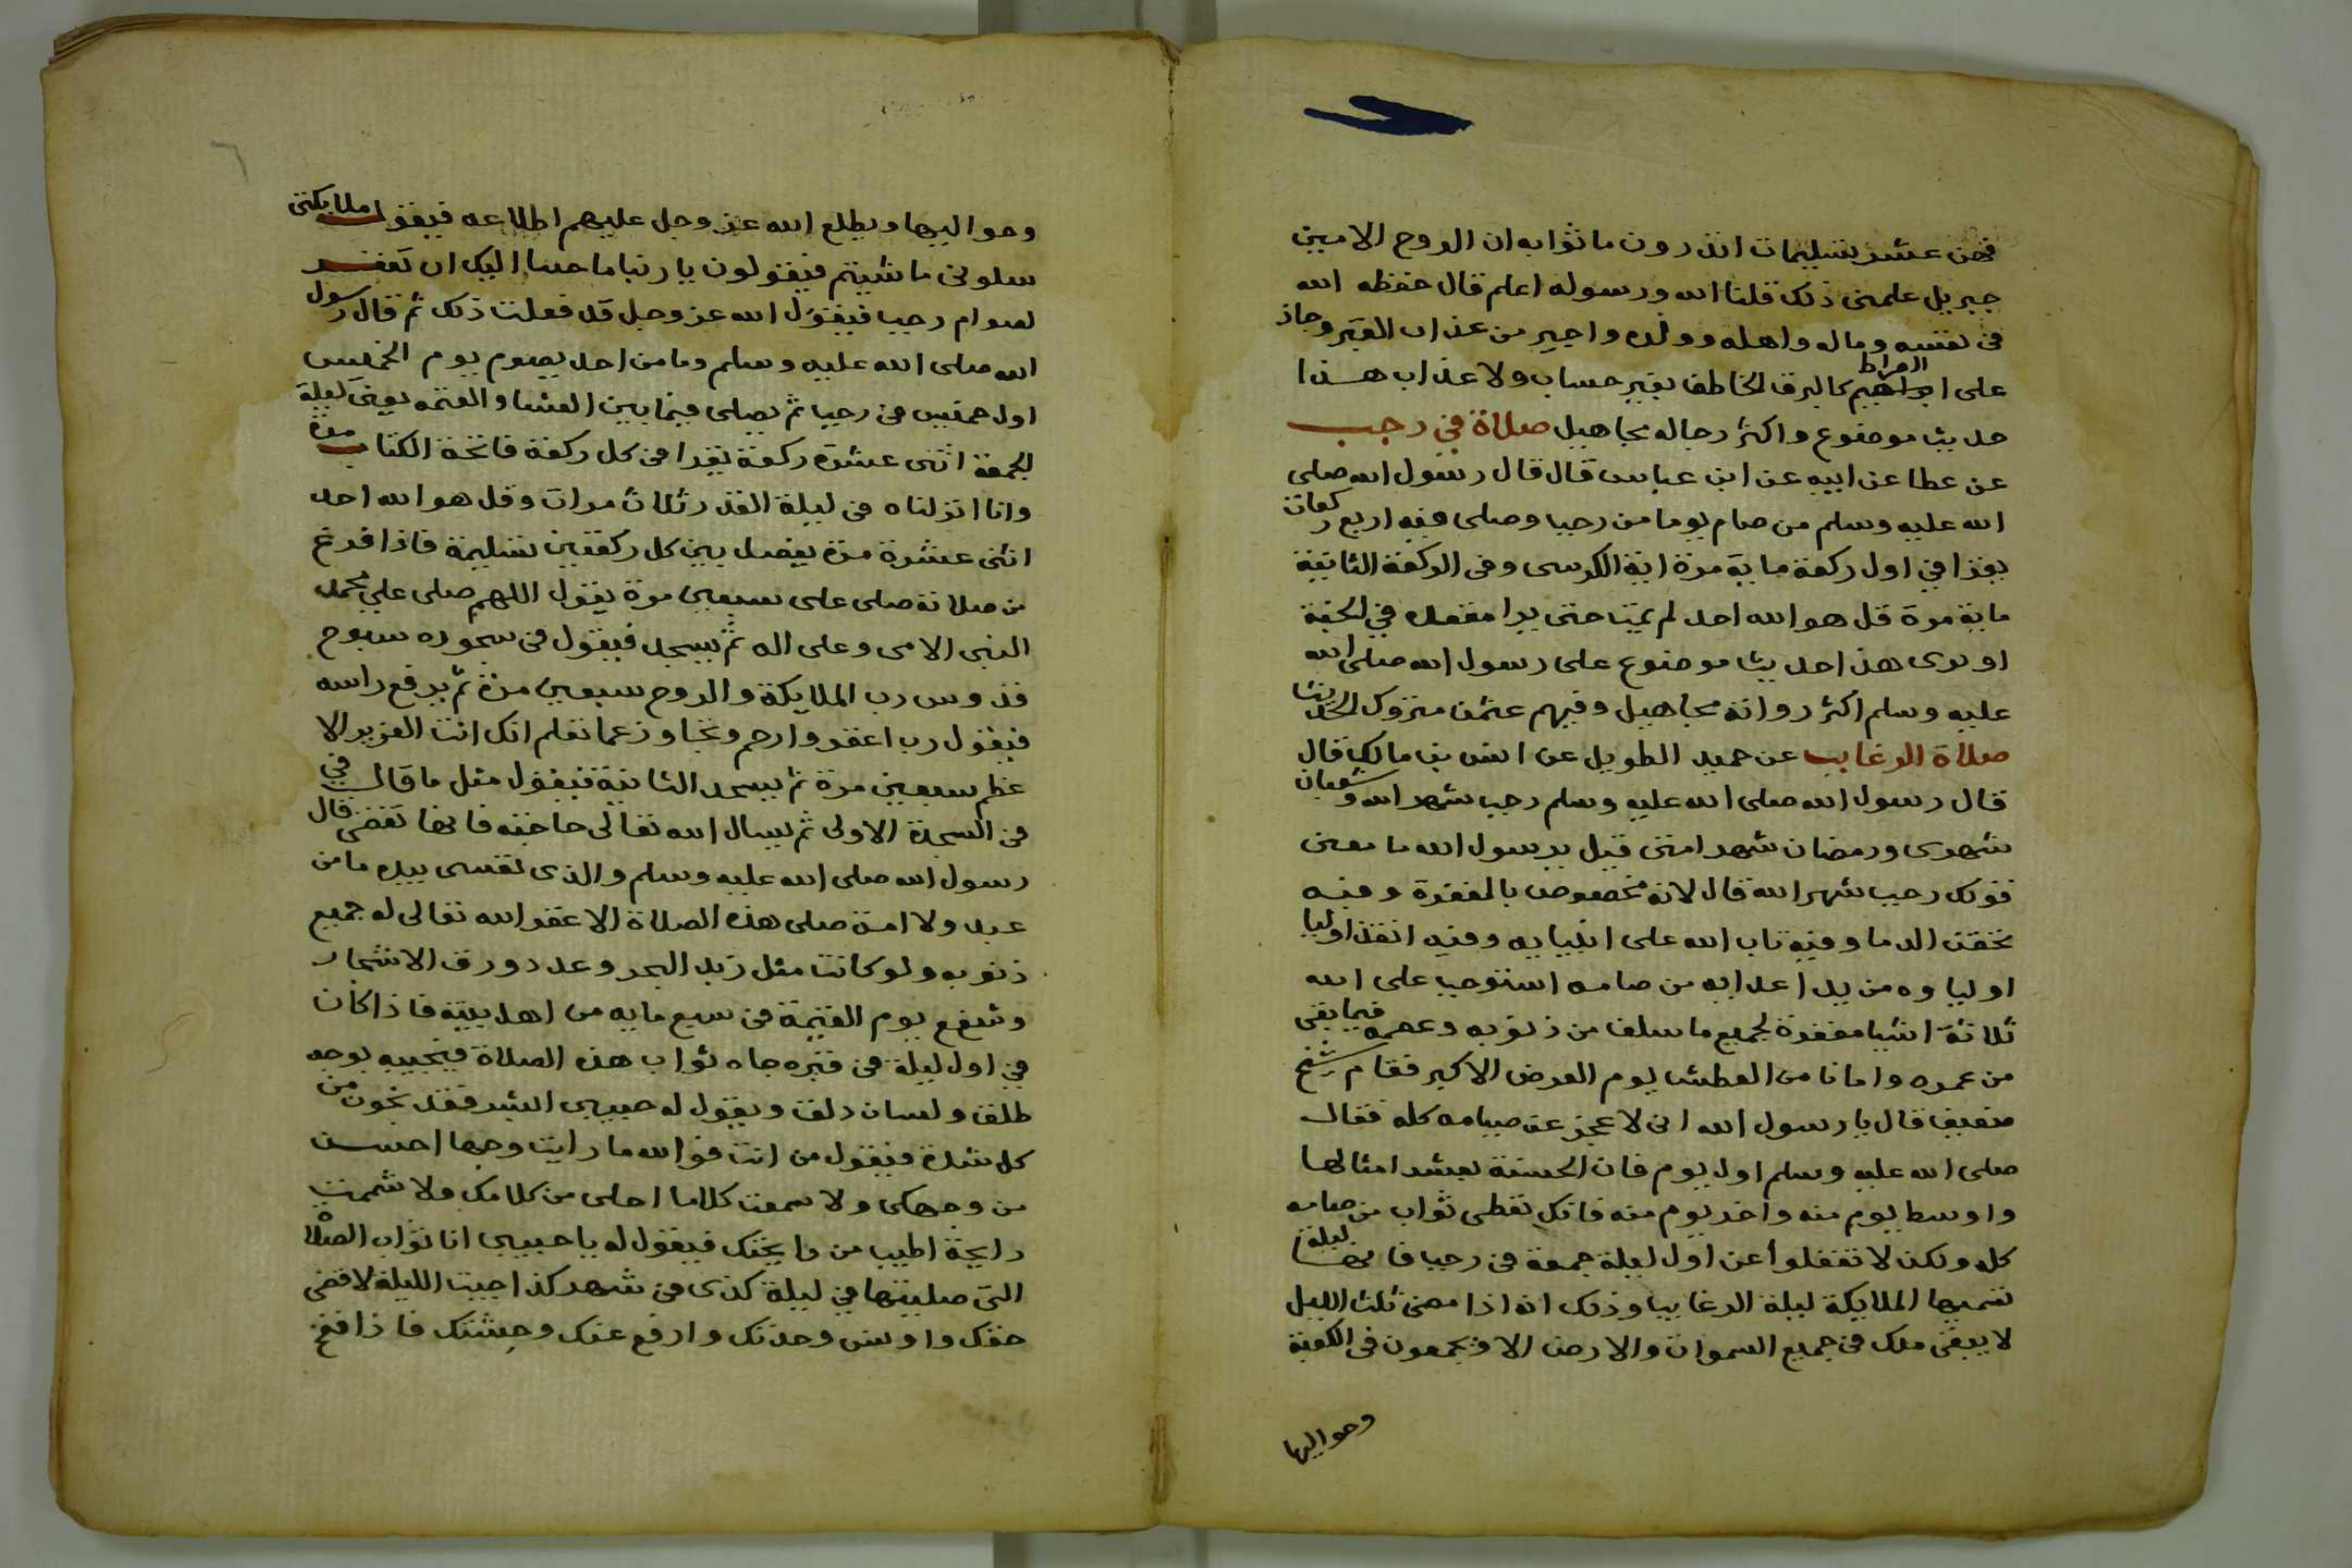 فهن عشر تسليمات اتدرون ما ثوابه ان الروح الامين
جبريل علمنى ذلك قلنا الله ورسوله اعلم قال حفظه الله
فى نفسه وماله واهله وولده واجير من عذاب القبر وجاز
على الصراط كالبرق الخاطف بغير حساب ولا عذاب هذا
حديث موضوع واكثر رجاله مجاهيل صلاة في رجب
عن عطا عن ابيه عن ابن عباس قال قال رسول الله صلى
الله عليه وسلم من صام يوما من رجب وصلى فيه اربع ركعات
يقرا في اول ركعة ماية مرة اية الكرسى وفى الركعة الثانية
ماية مرة قل هو الله احد لم يمت حتى يرا مقعده في الجنة
او يرى هذا حديث موضوع على رسول الله صلى الله
عليه وسلم اكثر رواته مجاهيل وفيهم عثمن متروك الحديث
صلاة الرغايب عن حميد الطويل عن انس بن مالك قال
قال رسول الله صلى الله عليه وسلم رجب شهر الله وشعبان
شهرى ورمضان شهر امتى قيل يرسول الله ما معنى
قولك رجب شهر الله قال لانه مخصوص بالمغفرة وفيه
تحقن الدما وفيه تاب الله على انبيايه وفيه انقذ اوليا
اولياوه من يد اعدايه من صامه استوجب على الله
ثلاثة اشيا مغفرة لجميع ما سلف من ذنوبه وعصمه فيما بقى
من عمره وامانا من العطش يوم العرض الاكبر فقام شيخ
ضعيف قال يا رسول الله انى لا عجز عن صيامه كله فقال
صلى الله عليه وسلم اول يوم فان الحسنة بعشر امثالها
واوسط يوم منه واخر يوم منه فانك تعطى ثواب من صامه
كله ولكن لا تغفلوا عن اول ليلة جمعة فى رجب فانها ليلة
تسميها الملايكة ليلة الرغايب وذلك انه اذا مضى ثلث الليل
لا يبقى ملك فى جميع السموات والارض الا ويجمعون فى الكعبة
وحواليها
وحواليها ويطلع الله عز وجل عليهم اطلاعه فيقول ملايكتى
سلونى ما شيتم فيقولون يا ربنا حاجتنا اليك ان تغفر
لصوام رجب فيقول الله عز وجل قد فعلت ذلك ثم قال رسول
الله صلى الله عليه وسلم وما من احد يصوم يوم الخميس
اول خميس فى رجب ثم يصلى فيما بين العشا والعتمه يعنى ليلة
الجمعة اثنى عشرة ركعة يقرا فى كل ركعة فاتحة الكتاب مرة
وانا انزلناه فى ليلة القدر ثلاث مرات وقل هو الله احد
اثنى عشرة مرة يفصل بين كل ركعتين تسليمة فاذا فرغ
من صلاته صلى على سبعين مرة يقول اللهم صلى على محمد
النبى الامى وعلى اله ثم يسجد فيقول فى سجوده سبوح
قدوس رب الملايكة والروح سبعين مرة ثم يرفع راسه
فيقول رب اغفر وارحم وتجاوز عما تعلم انك انت العزيز الا
عظم سبعين مرة ثم يسجد الثانية فيقول مثل ما قال في
فى السجدة الاولى ثم يسال الله تعالى حاجته فانها تقضى قال
رسول الله صلى الله عليه وسلم والذى نفسى بيده ما من
عبد ولا امة صلى هذه الصلاة الا غفر الله تعالى له جميع
ذنوبه ولو كانت مثل زبد البحر وعدد ورق الاشجار
وشفع يوم القيمة فى سبع مايه من اهل بيته فاذا كان
في اول ليلة فى قبره جاه ثواب هذه الصلاة فيجيبه بوجه
طلق ولسان دلق ويقول له حبيبى ابشر فقد نجوت من
كل شدة فيقول من انت فوالله ما رايت وجها احسن
من وجهك ولا سمعت كلاما احلى من كلامك ولا شممت
رايحة اطيب من رايحتك فيقول له يا حبيبى انا ثواب الصلاة
التى صليتها في ليلة كذى فى شهر كذا جيت الليلة لاقضى
حقك واونس وحدتك وارفع عنك وحشتك فاذا نفخ